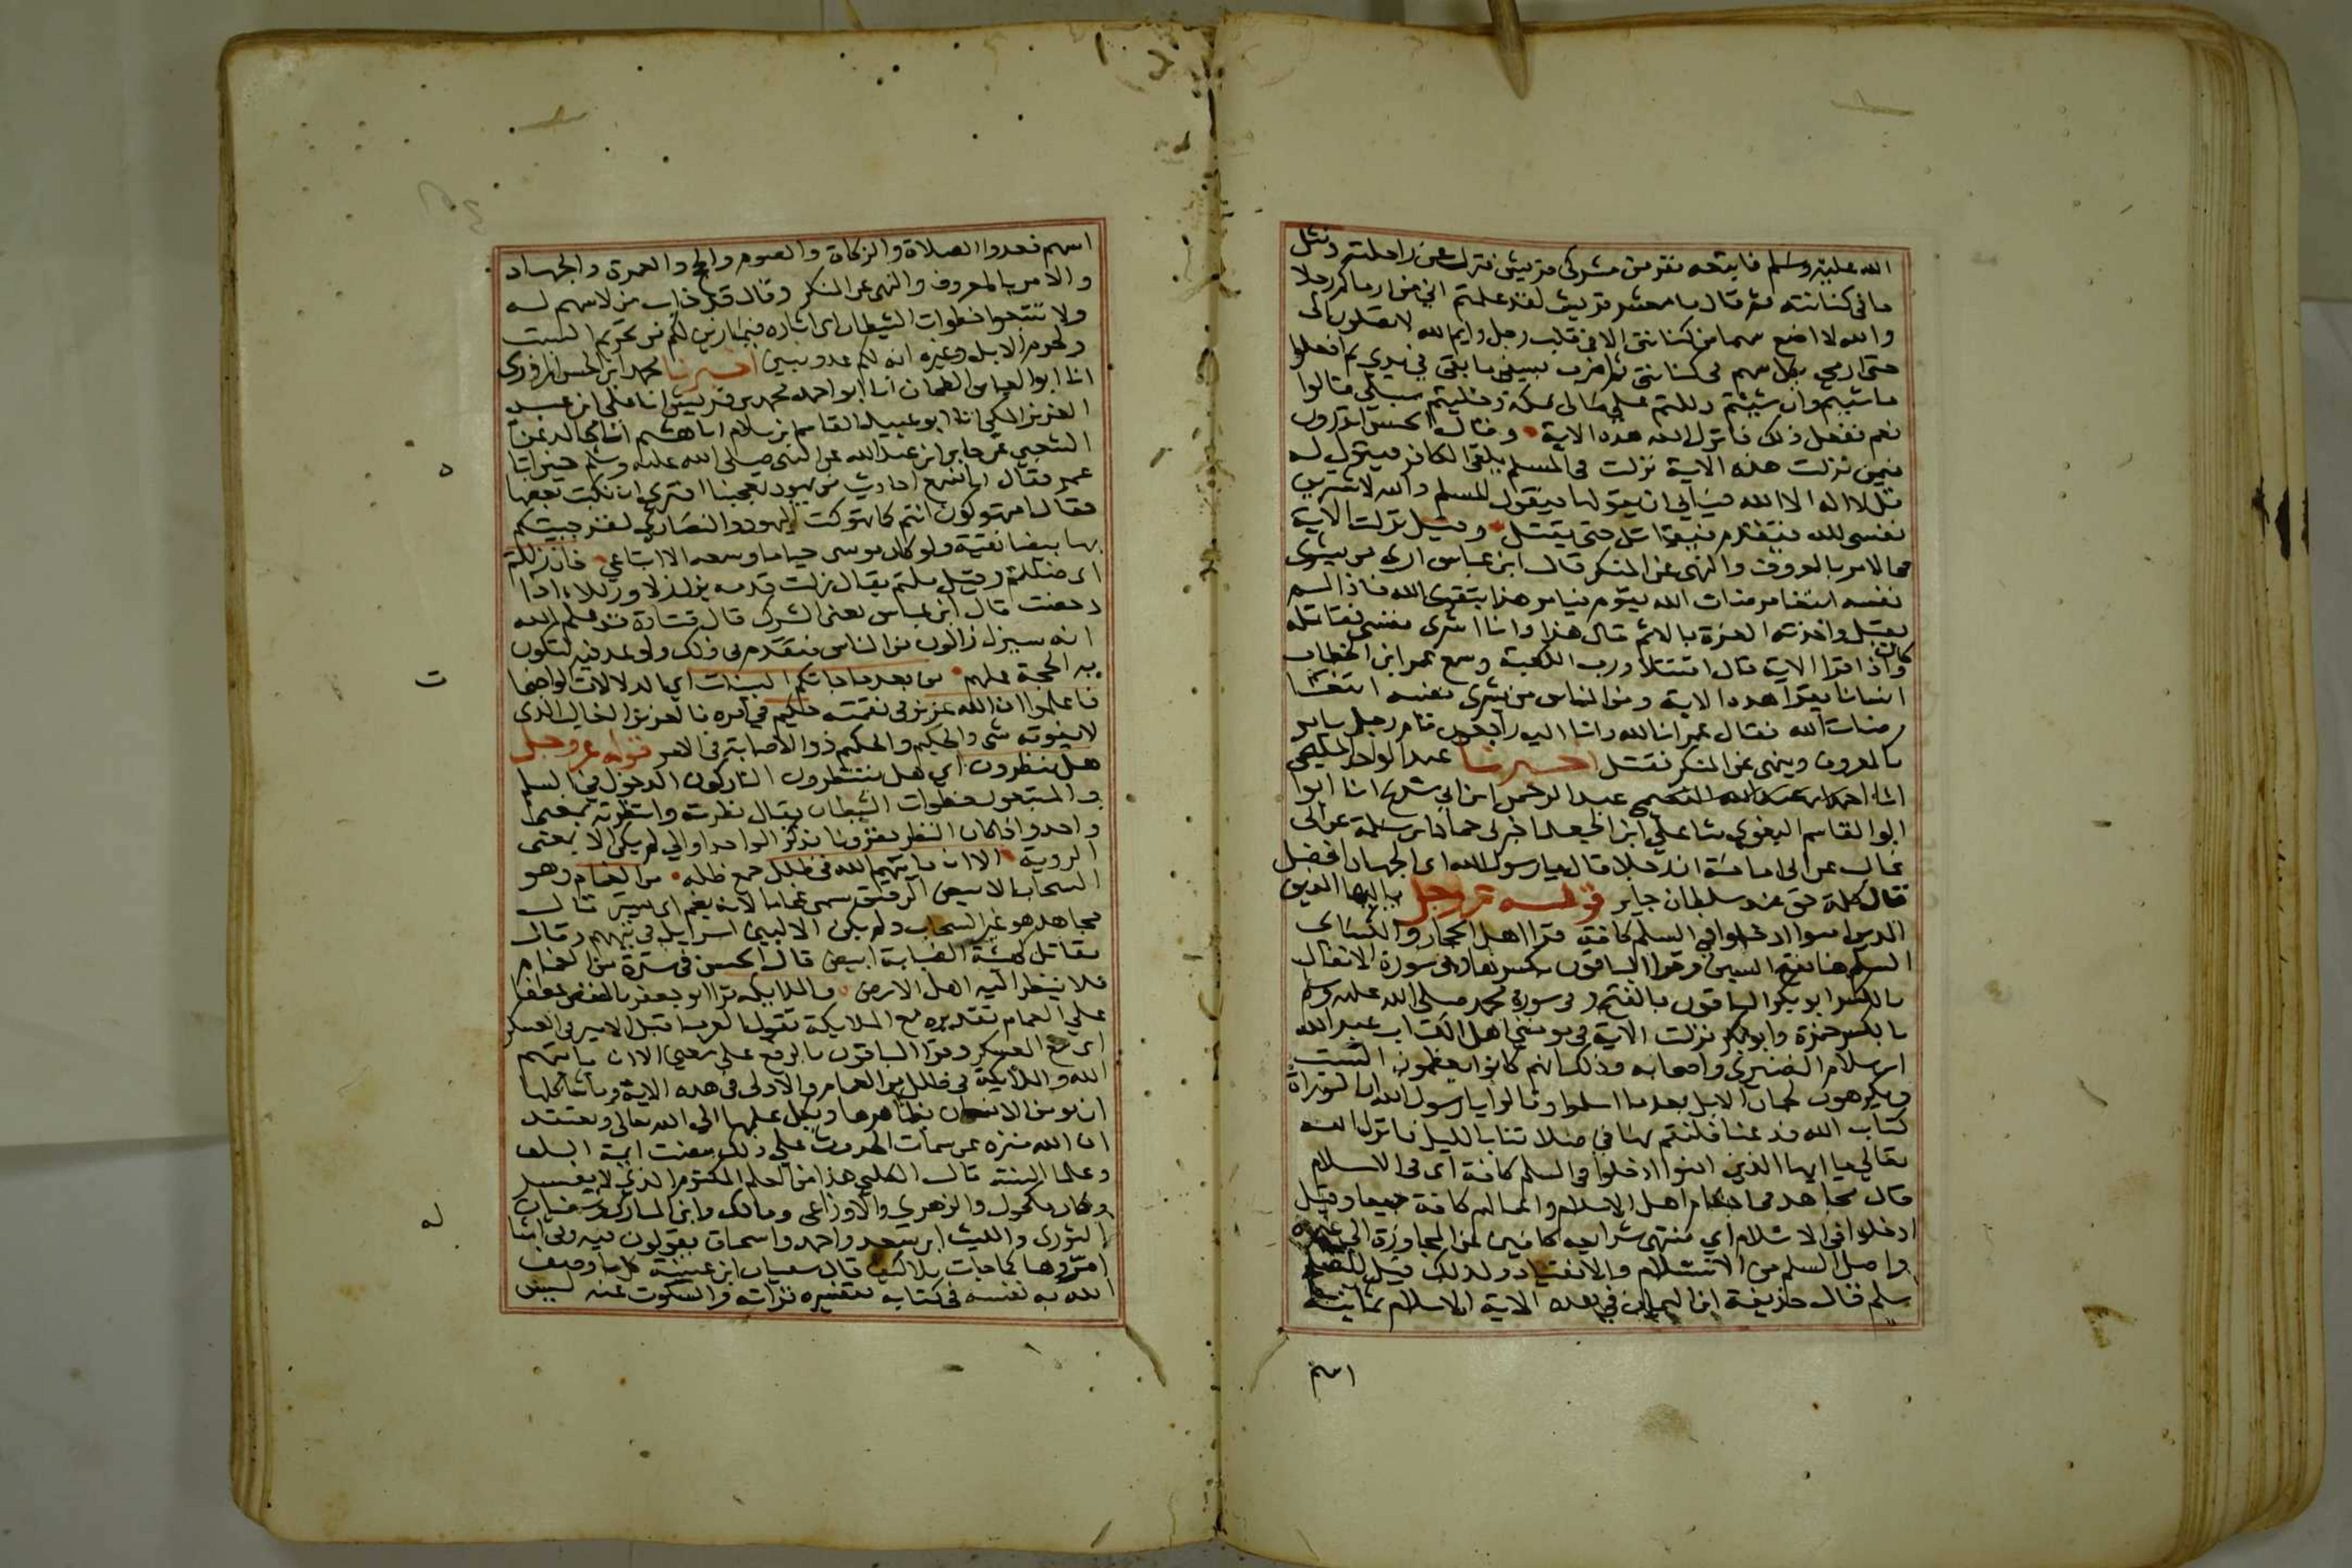 الله عليه وسلم فاتبعه نفر من مشركي قريش فنزل عن راحلته ونثل
ما في كنانته ثم قال يا معشر قريش لقد علمتم اني من ارماكم رجلا
والله لا اضع سهما من كنانتي الا في قلب رجل وايم الله لا تصلون الى
حتى ارمي بكل سهم في كنانتي ثم اضرب بسيفي ما بقي في يدي ثم افعلوا
ما شيتم وان شيتم دللتم على مالى بمكة وخليتم سبيلي قالوا
نعم ففعل ذلك فانزل الله هذه الاية وقال الحسن اتدرون
فيمن نزلت هذه الاية نزلت في المسلم يلقى الكافر فيقول له
قل لا اله الا الله فيابي ان يقولها فيقول المسلم والله لاشرين
نفسي لله فيتقدم فيقاتل حتى يقتل وقيل نزلت الاية
في الامر بالمعروف والنهى عن المنكر قال ابن عباس ارى من يشرى
نفسه ابتغا مرضات الله يقوم فيامر هذا بتقوى الله فاذا لم
يقبل واخذته العزة بالاثم قال هذا وانا اشرى نفسي فقاتله
وكان اذا قرا الاية قال اقتتلا ورب الكعبة وسمع عمر ابن الخطاب
انسانا يقرا هذه الاية ومن الناس من يشرى نفسه ابتغا
مرضات الله فقال عمر انا لله وانا اليه راجعون قام رجل يامر
بالمعروف وينهى عن المنكر فقتل اخبرنا عبد الواحد المليحي
انا عبد الرحمن ابن ابي شريح انا ابوا
ابوا القاسم البغوي ثنا علي ابن الجعد اخبرنى حماد بن سلمة عن ابى
غالب عن ابى امامة ان رجلا قال يا رسول الله اى الجهاد افضل
قال كلمة حق عند سلطان جاير قوله عز وجل يا ايها الذين
الذين امنوا ادخلوا في السلم كافة قرا اهل الحجاز والكساى
السلم هنا بفتح السين وقرا الباقون بكسرها وفى سورة الانفال
بالكسر ابو بكر والباقون بالفتح وفى سورة محمد صلى الله عليه وسلم
بالكسر حمزة وابو بكر نزلت الاية في مومني اهل الكتاب عبد الله
ابن سلام النضيرى واصحابه وذلك انهم كانوا يعظمون السبت
ويكرهون لحمان الابل بعد ما اسلموا وقالوا يا رسول الله ان التوراة
كتاب الله فدعنا فلنقم بها في صلاتنا بالليل فانزل الله
تعالى يا ايها الذين امنوا ادخلوا في السلم كافة اى في الاسلام
قال مجاهد في احكام اهل الاسلام واعمالهم كافة جميعا وقيل
ادخلوا في الاسلام اي منتهى شرايعه كافين عن المجاوزة الى غيره
واصل السلم من الاستسلام والانقياد ولذلك قيل للصلح
سلم قال حذيفة ابن اليمان في هذه الاية الاسلام ثمانية
اسهم
اسهم فعدوا الصلاة والزكاة والصوم والحج والعمرة والجهاد
والامر بالمعروف والنهي عن المنكر وقال قد خاب من لا سهم له
ولا تتبعوا خطوات الشيطان اى اثاره فيما زين لكم من تحريم السبت
ولحوم الابل وغيره انه لكم عدو مبين اخبرنا محمد ابن الحسن المروزى
انا ابو العباس الطحان انا ابو احمد محمد بن قريش انا علي ابن عبد
العزيز المكي انا ابو عبيد القاسم بن سلام انا هشيم انا مجالد عن
الشعبي عن جابر ابن عبد الله عن النبي صلى الله عليه وسلم حين اتاه
عمر فقال انا نسمع احاديث من يهود تعجبنا افترى ان نكتب بعضها
فقال امتهوكون انتم كما تهوكت اليهود والنصارى لقد جيتكم
بها بيضا نقية ولو كان موسى حيا ما وسعه الا اتباعي فان زللتم
اى ضللتم وقيل ملتم يقال زلت قدمه يزل زلا وزللا اذا
دحضت قال ابن عباس يعني الشرك قال قتادة قد علم الله
انه سيزل زالون من الناس فتقدم في ذلك واوعد فيه لتكون
به الحجة عليهم من بعد ما جاتكم البينات اى الدلالات الواضحات
فاعلموا ان الله عزيز في نقمته حكيم في امره فالعزيز الغالب الذى
لا يفوته شي والحكيم ذو الاصابة في الامر قوله عز وجل
هل ينظرون اي هل ينتظرون التاركون الدخول في السلم
والمتبعون خطوات الشيطان يقال نظرته وانتظرته بمعنى
واحد واذا كان النظر مقرونا بذكر الوجه او الى لم يكن الا بمعنى
الروية الا ان ياتيهم الله في ظلل جمع ظله من الغمام وهو
السحاب الابيض الرقيق سمى غماما لانه يغم اى يستر قال
مجاهد هو غير السحاب ولم يكن الا لبني اسرايل في تيههم وقال
مقاتل كهيئة الضبابة ابيض قال الحسن في سترة من الغمام
فلا ينظر اليه اهل الارض والملايكة قرا ابو جعفر بالخفض عطفا
على الغمام تقديره مع الملايكة تقول العرب اقبل الامير في العسكر
اى مع العسكر وقرا الباقون بالرفع على معنى الا ان ياتيهم
الله والملايكة في ظلل من الغمام والاولى في هذه الاية وما شاكلها
ان يومن الانسان بظاهرها ويكل علمها الى الله تعالى ويعتقد
ان الله منزه عن سمات الحدوث على ذلك مضت ايمة السلف
وعلما السنة قال الكلبي هذا من العلم المكتوم الذي لا يفسر
وكان مكحول والزهري والاوزاعي ومالك وابن المبارك وسفيان
الثورى والليث ابن سعد واحمد واسحاق يقولون فيه وفي امثاله
امروها كما جات بلا كيف قال سفيان ابن عيينة كل ما وصف
الله به نفسه في كتابه تفسيره قراته والسكوت عنه ليس